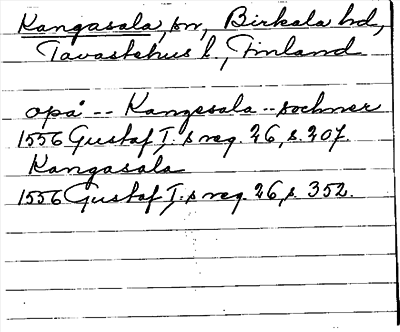 Kangasala, sn, Birkala hd,
Tavastehus l., Finland
opå -- Kangesala -- sochner
1556 Gustaf I:s reg. 26, s. 207.
Kangasala
1556 Gustaf I:s reg. 26, s. 352.